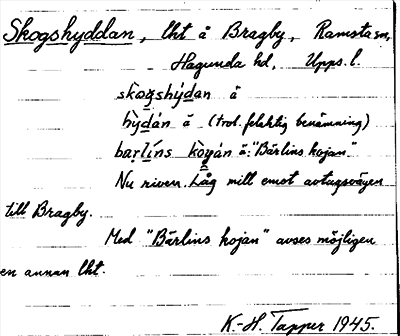 Skogshyddan, lht å Bragby, Ramsta sn,
Hagunda hd, Upps. l.
skog̀shýdan å
hỳdán å (trol. felaktig benämning)
barlíns kòyán å: "Bärlins kojan"
Nu riven. Låg mitt emot avtagsvägen
till Bragby.
Med "Bärlins kojan" avses möjligen
en annan lht.
K.-H. Tapper 1945.